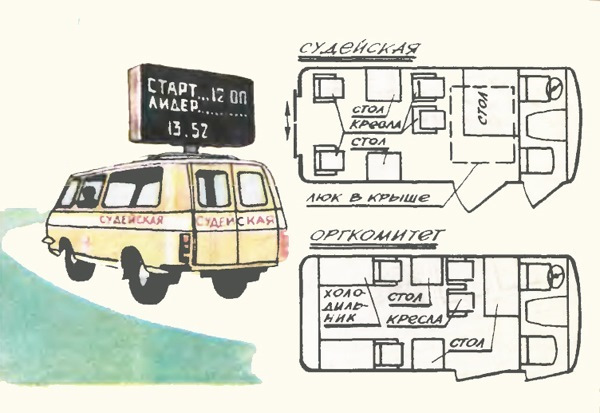 СТАРТ...12 00
ЛИДЕР.........
13.52
СУДЕЙСКАЯ
СУДЕЙСКАЯ
СУДЕЙСКАЯ
СТОЛ
КРЕСЛА
СТОЛ
СТОЛ
ЛЮК В КРЫШЕ
ОРГКОМИТЕТ
ХОЛО-
ДИЛЬ-
НИК
СТОЛ
КРЕСЛА
СТОЛ